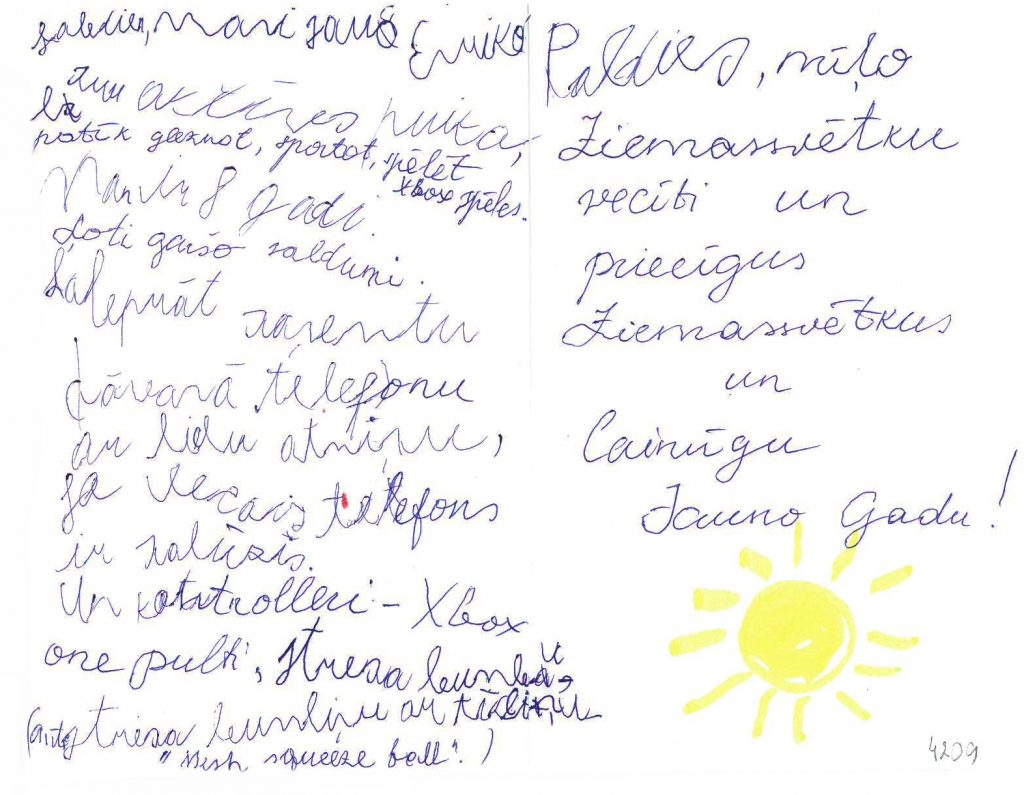 Labdien, mani sauc Emīko
Esmu aktīvs puika,
patīk gleznot, sportot, spēlēt
xbox spēles.
Man ir 8 gadi.
Ļoti garšo saldumi.
Labprāt saņemtu
dāvanā telefonu
ar lielu atmiņu,
ja vecais telefons
ir salūzis.
Un kontrolleri - Xbox
one pulti, stresa bumbu,
stresa bumbiņu ar tīkliņu
"Mesh squeeze ball". )
Paldies, mīļo
Ziemassvētku
vecīti un
priecīgus
Ziemassvētkus
un
Laimīgu
Jauno Gadu!
4209